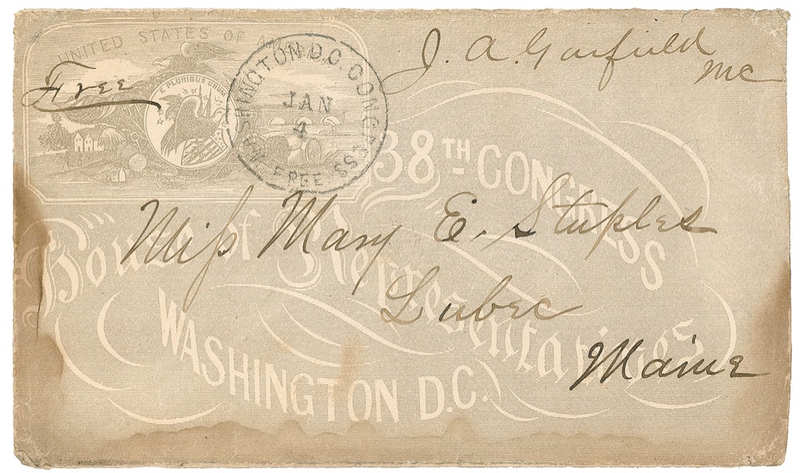 UNITED STATES OF A
Free
E PLURIBUS UNUM
WASHINGTON D.C. CONGRESS
JAN
4
FREE
J. A. Garfield
MC
38TH CONGRESS
House of Representatives
WASHINGTON D.C.
Miss Mary E. Stuples
Lubec
Maine